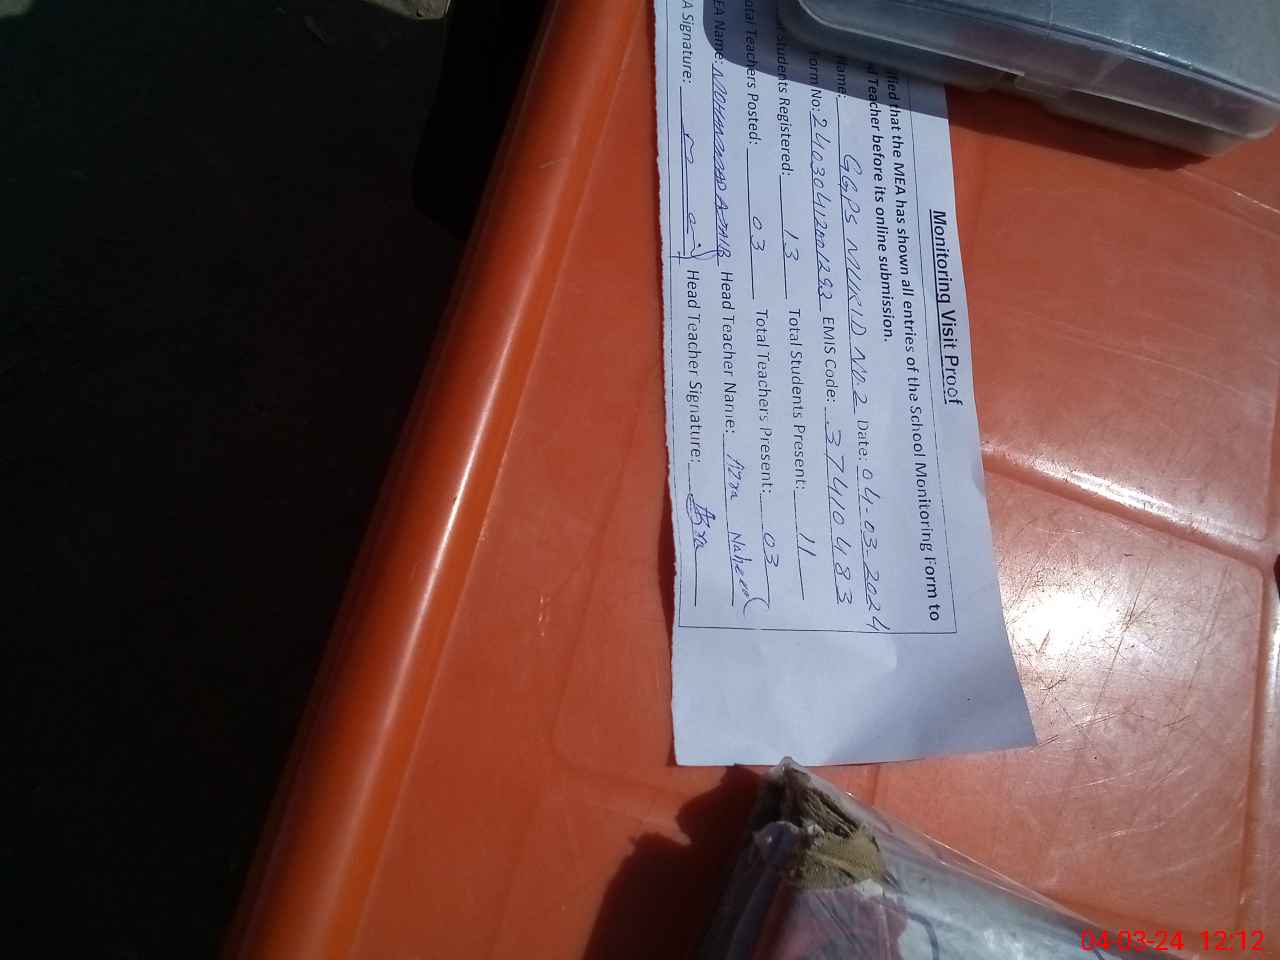 Monitoring Visit Proof
ified that the MEA has shown all entries of the School Monitoring Form to
d Teacher before its online submission.
Name: GGPS MURID NO.2 Date: 04.03.2024
orm No: EMIS Code: 37410483
Students Registered: 13 Total Students Present: 11
otal Teachers Posted: 03 Total Teachers Present: 03
EA Name: MOHAMMAD Head Teacher Name: Azra Naheed
A Signature: Head Teacher Signature: Azra
04-03-24 12:12